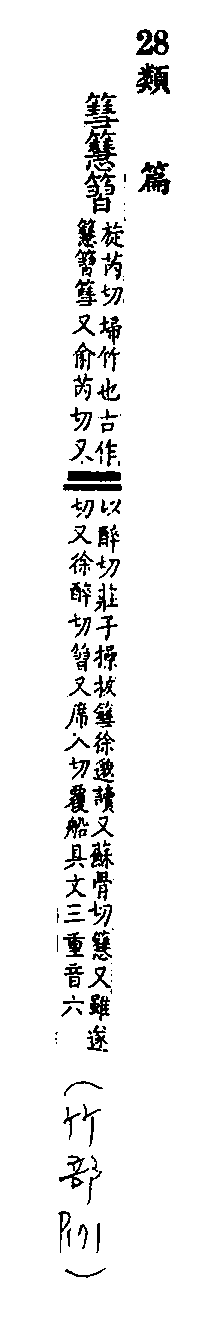 28類篇
篲篲䈅
旋芮切埽竹也古作
篲䈅篲又俞芮切又
以醉切莊子操拔篲徐邈讀又蘇骨切篲又雖遂
切又徐醉切䈅又席入切覆船具文三重音六
(竹部